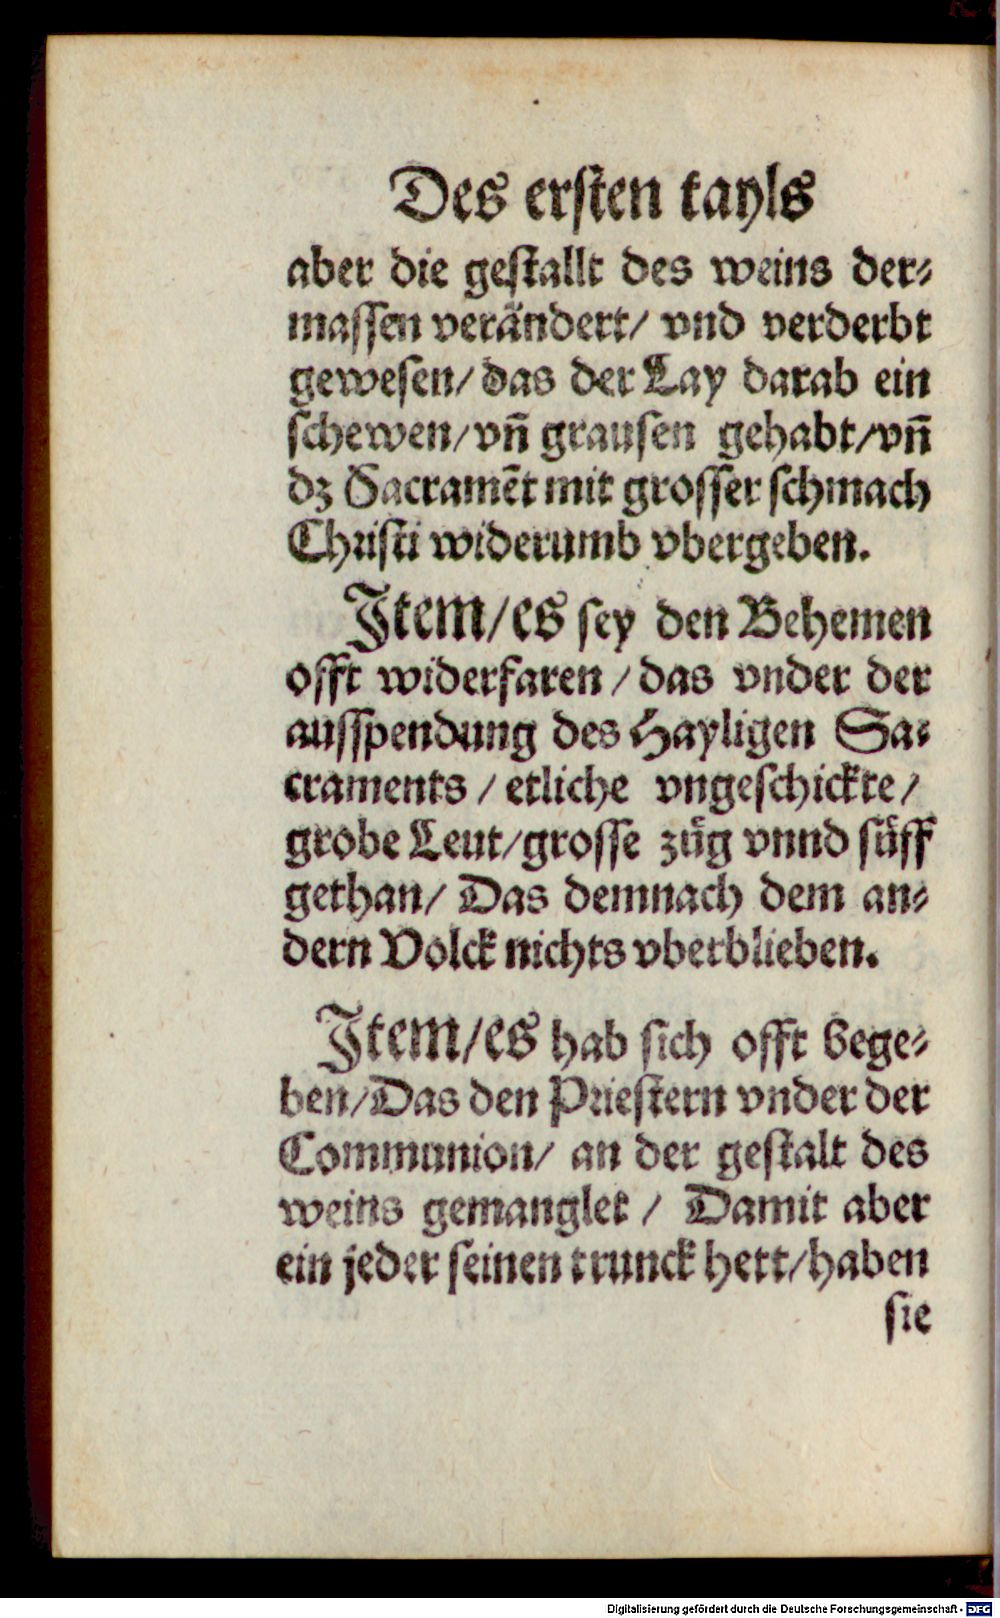 Des ersten tayls
aber die gestallt des weins der-
massen verändert/ vnd verderbt
gewesen/ das der Lay darab ein
schewen/ vñ grausen gehabt/ vñ
dz Sacramẽt mit grosser schmach
Christi widerumb vbergeben.
Item/ es sey den Behemen
offt widerfaren / das vnder der
ausspendung des Hayligen Sa-
craments / etliche vngeschickte/
grobe Leut/ grosse züg vnnd süff
gethan/ Das demnach dem an-
dern Volck nichts vberblieben.
Item/ es hab sich offt bege-
ben/ Das den Priestern vnder der
Communion/ an der gestalt des
weins gemanglet / Damit aber
ein jeder seinen trunck hett/ haben
sie
Digitalisierung gefördert durch die Deutsche Forschungsgemeinschaft - DFG